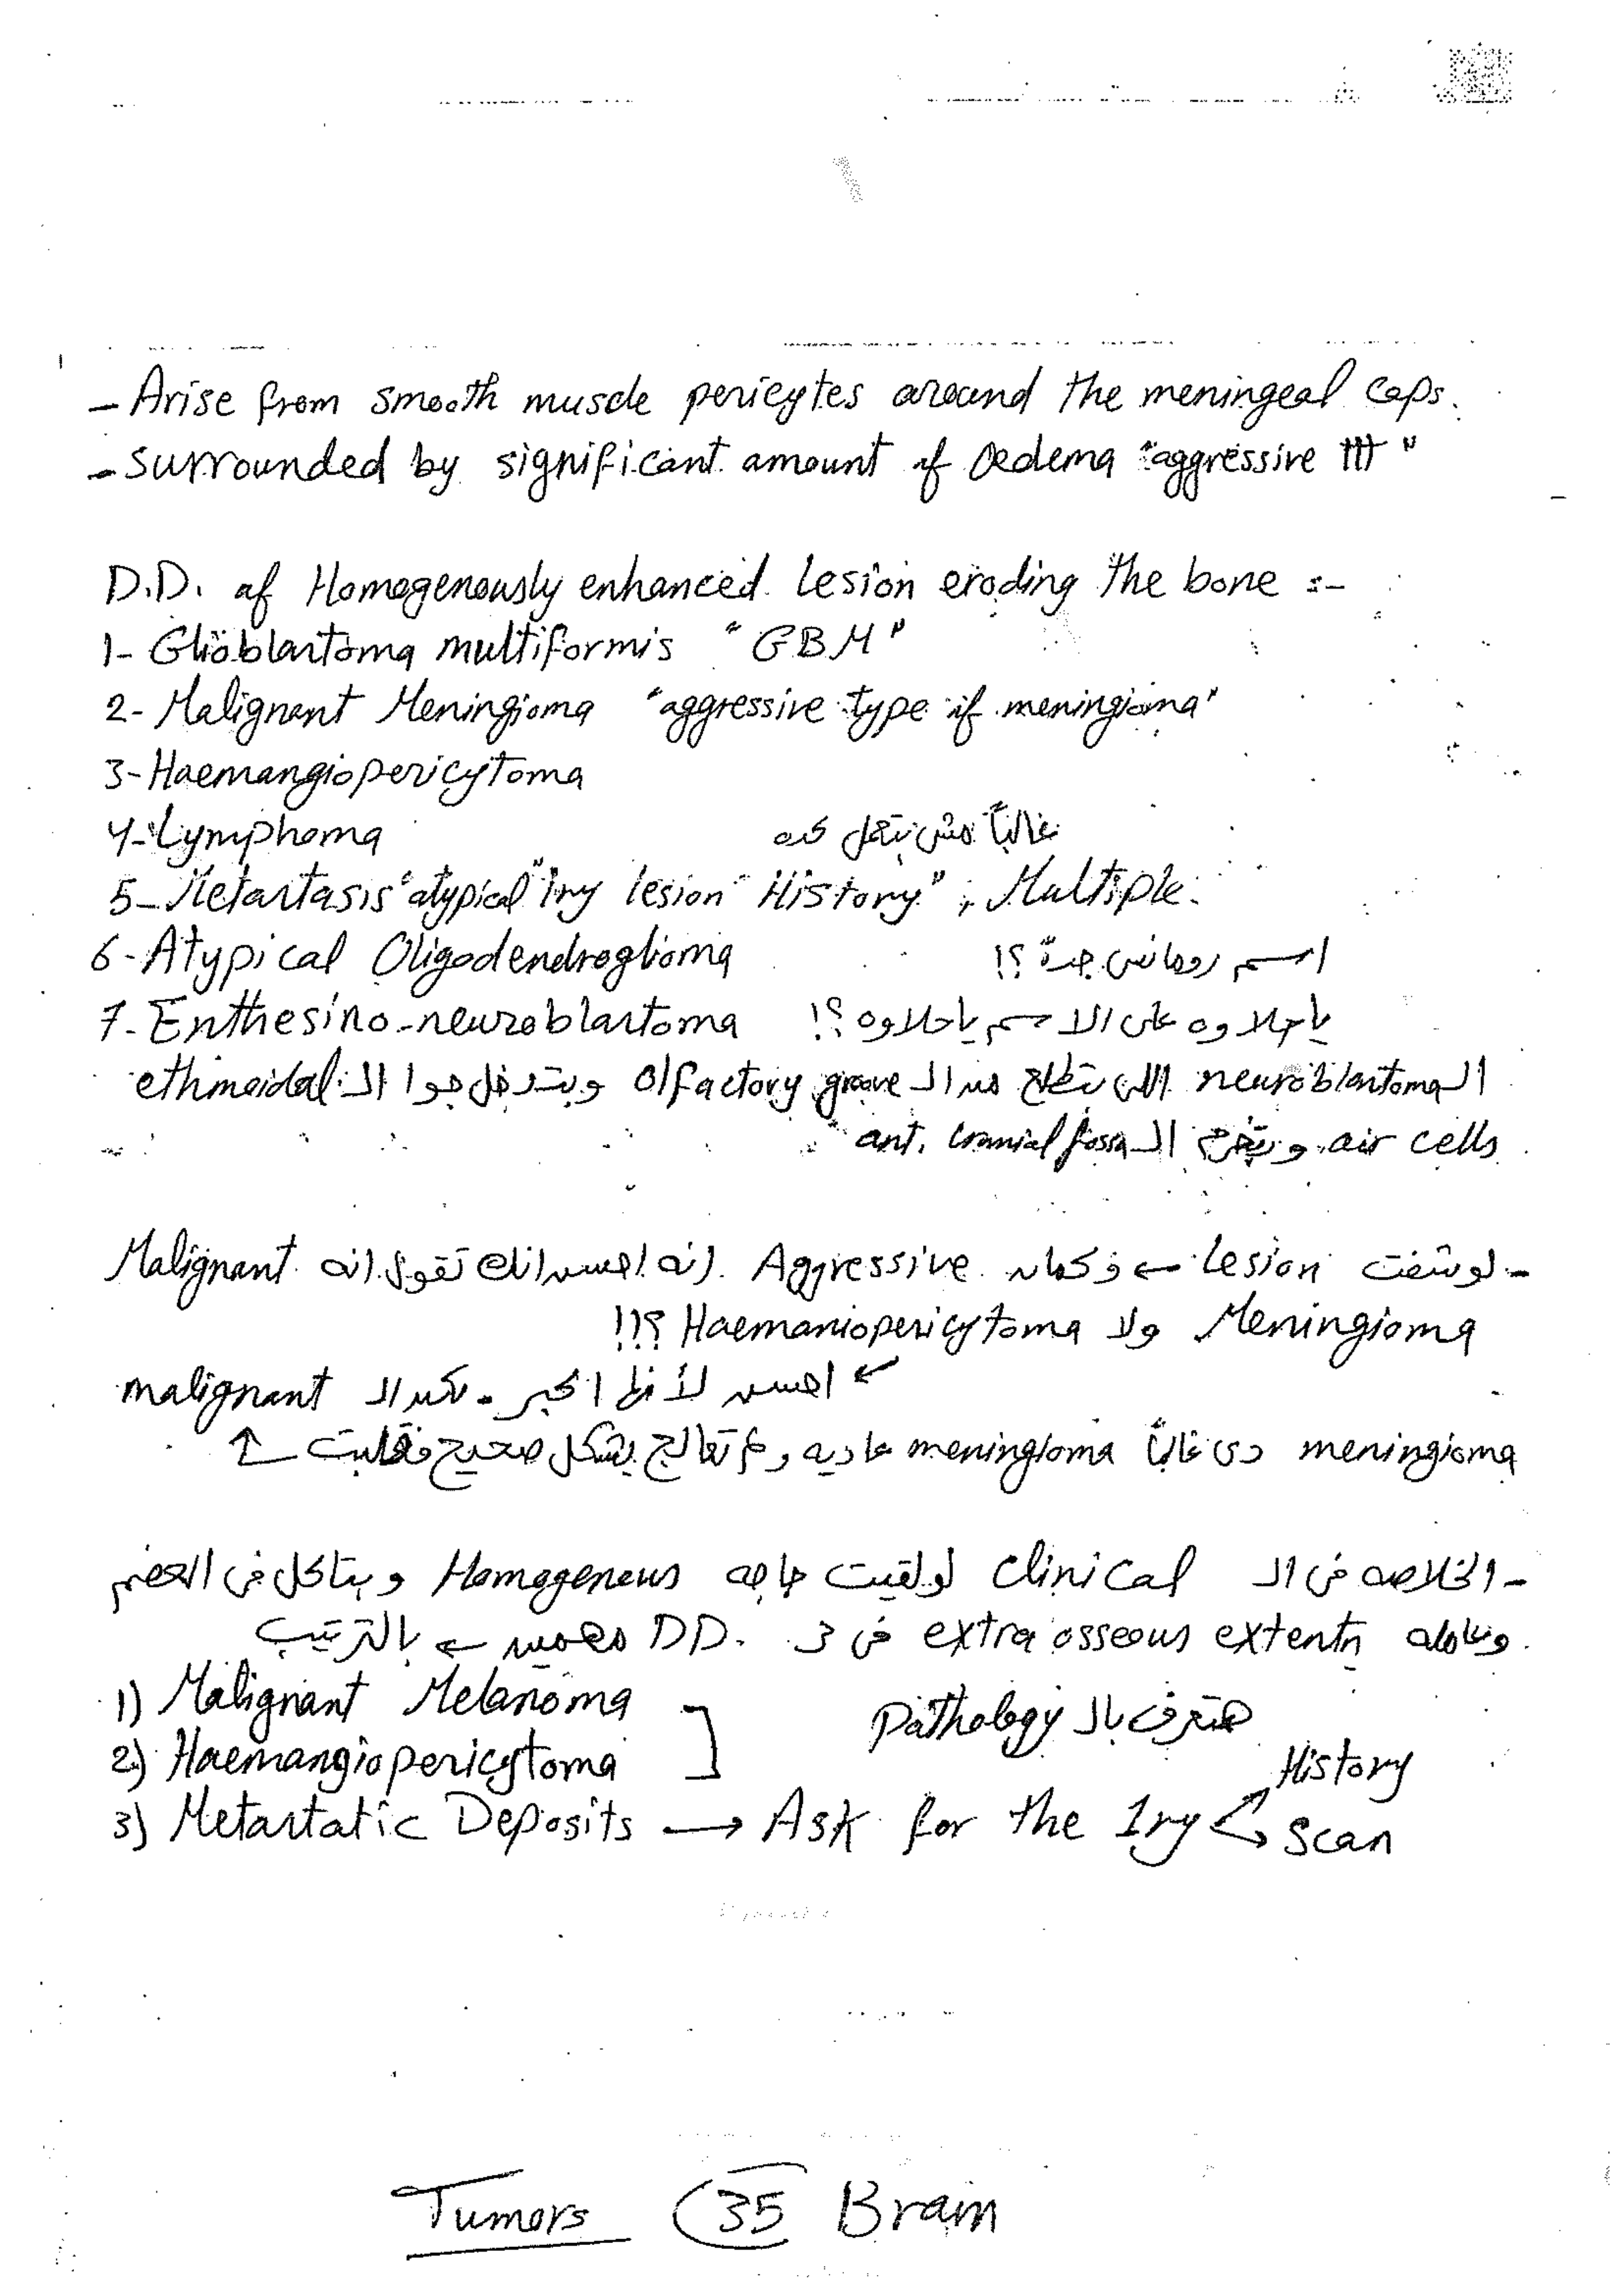 - Arise from smooth muscle pericytes around the meningeal caps.
- Surrounded by significant amount of Oedema "aggressive ttt"
D.D. of Homogenously enhanced lesion eroding the bone :-
1- Glioblastoma multiformis "GBM"
2- Malignant Meningioma "aggressive type of meningioma"
3- Haemangiopericytoma
4- Lymphoma غالباً مش بتعمل كده
5- Metastasis "atypical" 1ry lesion "History", Multiple.
6- Atypical Oligodendroglioma اسم رومانسي جداً ؟!
7- Enthesino-neuroblastoma ياحلاوه على الاسم ياحلاوه ؟!
الـ neuroblastoma اللى بتطلع من الـ olfactory groove وبتدخل جوا الـ ethmoidal
air cells وبتخرم الـ ant. cranial fossa
- لو شفت lesion ← وكمان Aggressive. إنه احسن انك تقول إنه Malignant
Meningioma ولا Haemaniopericytoma ؟!!
← احسن لأنها اكبر - لكن الـ malignant
meningioma دى غالباً meningioma عاديه ولم تعالج بشكل صحيح فقلبت ↑
- الخلاصه فى الـ Clinical لو لقيت حاجه Homogeneus وبتاكل فى العضم
وعامله extra osseous extentn فى 3 DD. مهمين ← بالترتيب
1) Malignant Melanoma
2) Haemangiopericytoma ] هتعرف بالـ Pathology
3) Metastatic Deposits → Ask for the 1ry
History
Scan
Tumors 35 Brain